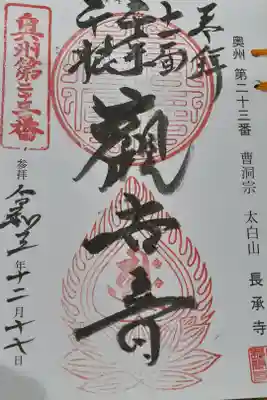 奥州 第二十三番 曹洞宗 太白山 長承寺
本尊
十一面
觀世音
奥州第二十三番
参拝 令和五年十二月十七日